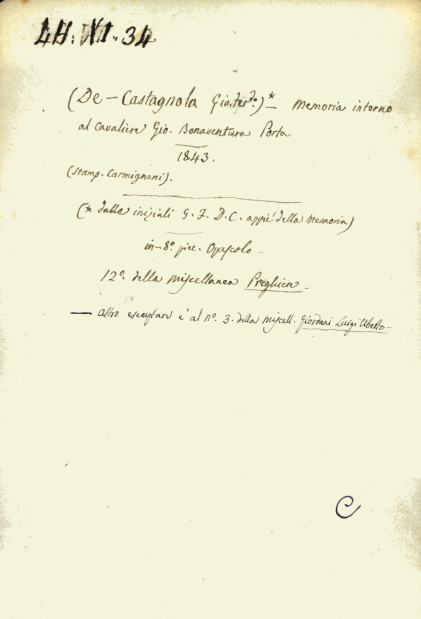 LH. VI. 34
(De-Castagnola Gio. Ferd.º)* - Memoria intorno
al Cavaliere Gio. Bonaventura Porta
1843.
(Stamp. Carmignani).
(* dalle iniziali G. F. D. C. appiè della Memoria)
in-8.º picc. Opuscolo -
12º. della Miscellanea Preghiere -
- altro esemplare è al nº. 3. della Miscell. Giordani Luigi Uberto -
C